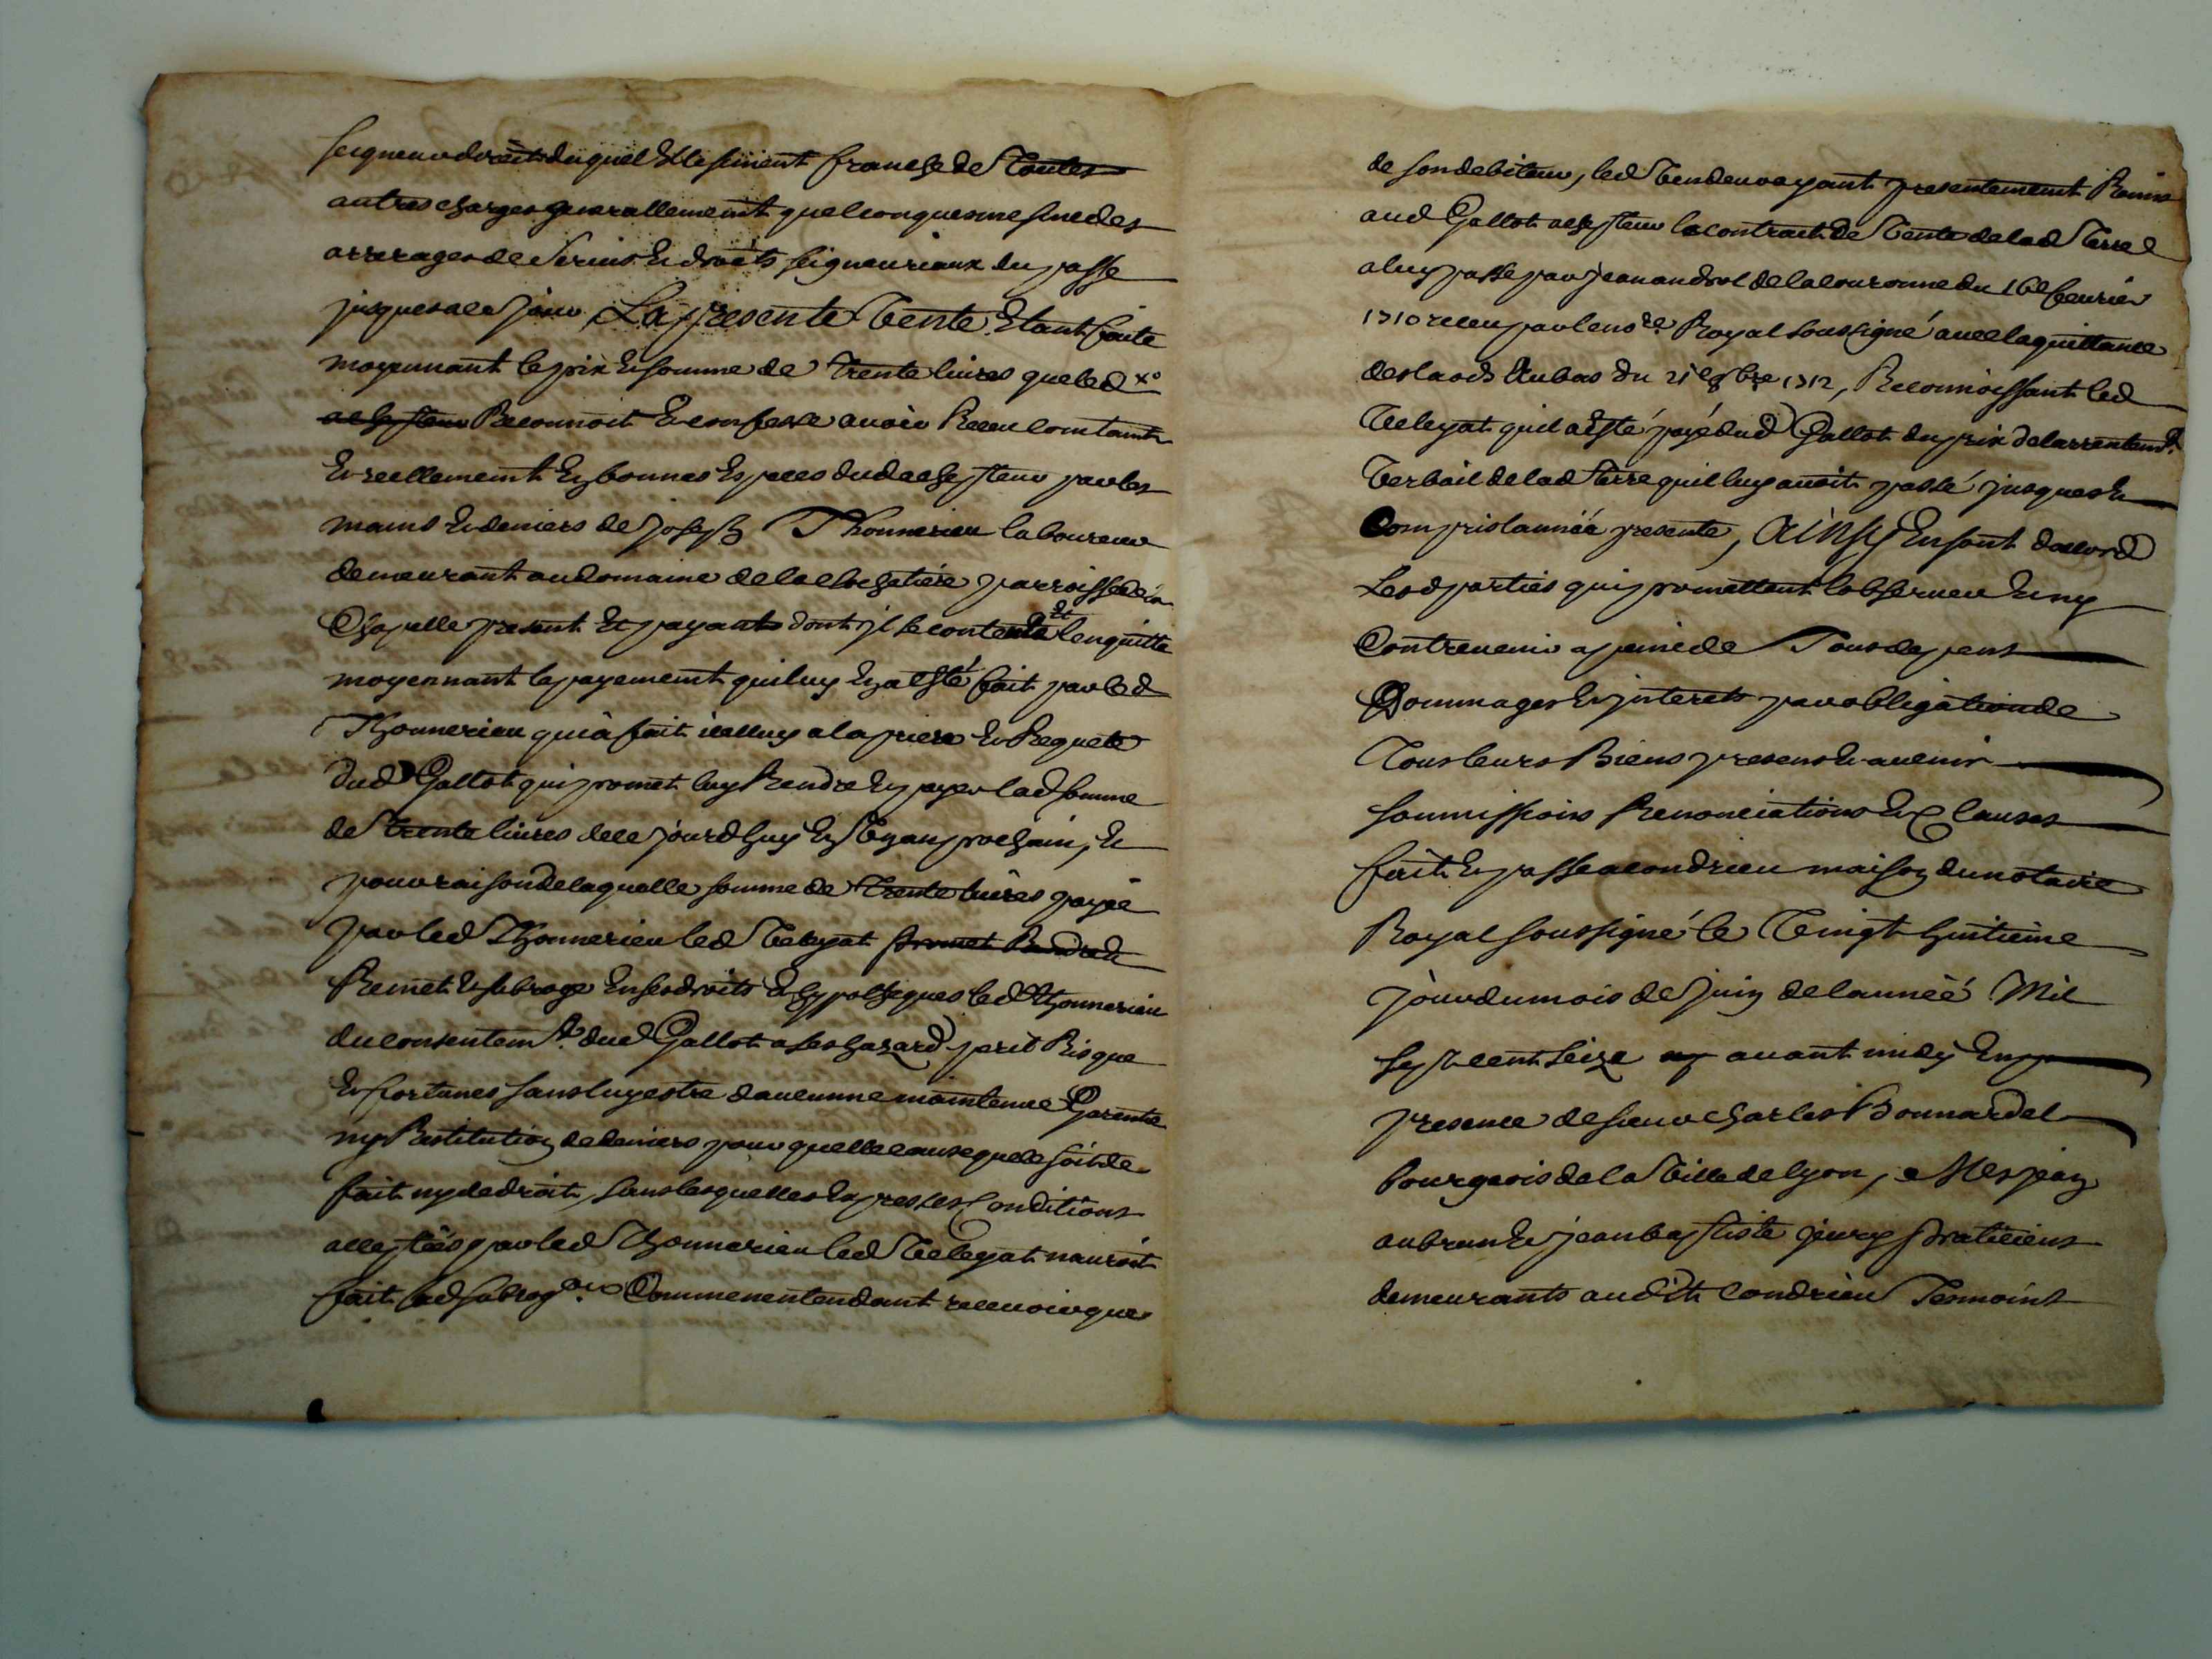 seigneur droit duquel Elle se vient franche de Toutes
autres charges generallement quelconques mesme des
arrerages de servis Et droits seigneuriaux du passé
jusques a ce jour La presente Vente Etant faite
moyennant le prix Et somme de trente livres que led
achepteur Reconnoit Et confesse avoir Receu comtant
Et reellement En bonnes Especes dud achepteur par les
mains Et deniers de Joseph Thonnerieu laboureur
demeurant au domaine de la parroisse de la
Chapelle present Et payant dont jl se contente Et lenquitte
moyennant le payement qui luy En a Esté fait par led
Thonnerieu qui à fait icelluy a la priere Et Requete
dud Gallot qui promet luy Rendre Et payer lad somme
de trente livres de ce jourdhuy En Vn an prochain, Et
pour raison de laquelle somme de Trente livres payée
par led Thonnerieu led Veleyat promet
Remet Et subroge En ses droits Et hyppotheques led Thonnerieu
du consentem.t dud Gallot a ses hazard peril Risque
Et fortunes sans luy estre daucunne maintenue Garente
ny Restitution de deniers pour quelle cause que ce soit de
fait ny de droit, sans lesquelles Expresses Conditions
acceptées par led Thonnerieu led Veleyat nauroit
fait lad subrog.on Comme nentendant recevoir que
de son debiteur, led Vendeur ayant presentement Remis
aud Gallot achepteur le contract de Vente de lad Terre
a luy passé par jean de la couronne du 16e fevrier
1710 receu par le no.re Royal soussigné avec la quittance
des laods Au bas du 21e 1712, Reconnoissant led
Veleyat quil a Esté payé dud Gallot du prix de larrentem.t
Verbail de lad terre quil luy avoit passé jusques Et
Compris lannée presente, Ainsy En sont daccord
Lesd parties qui promettent lobserver Et ny
Contrevenir a peine de Tous depens
Dommages Et jnterets par obligation de
Tous leurs Biens presens Et avenir
soumissions Renonciations Et Clauses
fait Et passé a condrieu maison du notaire
Royal soussigné le Vingt huitieme
jour du mois de juin de lanneé Mil
sept cent seize avant midy En
presence de sieur charles Bonnardel
bourgeois de la Ville de lyon, Mes
aubrun Et jean baptiste praticiens
demeurants audit Condrieu Temoins